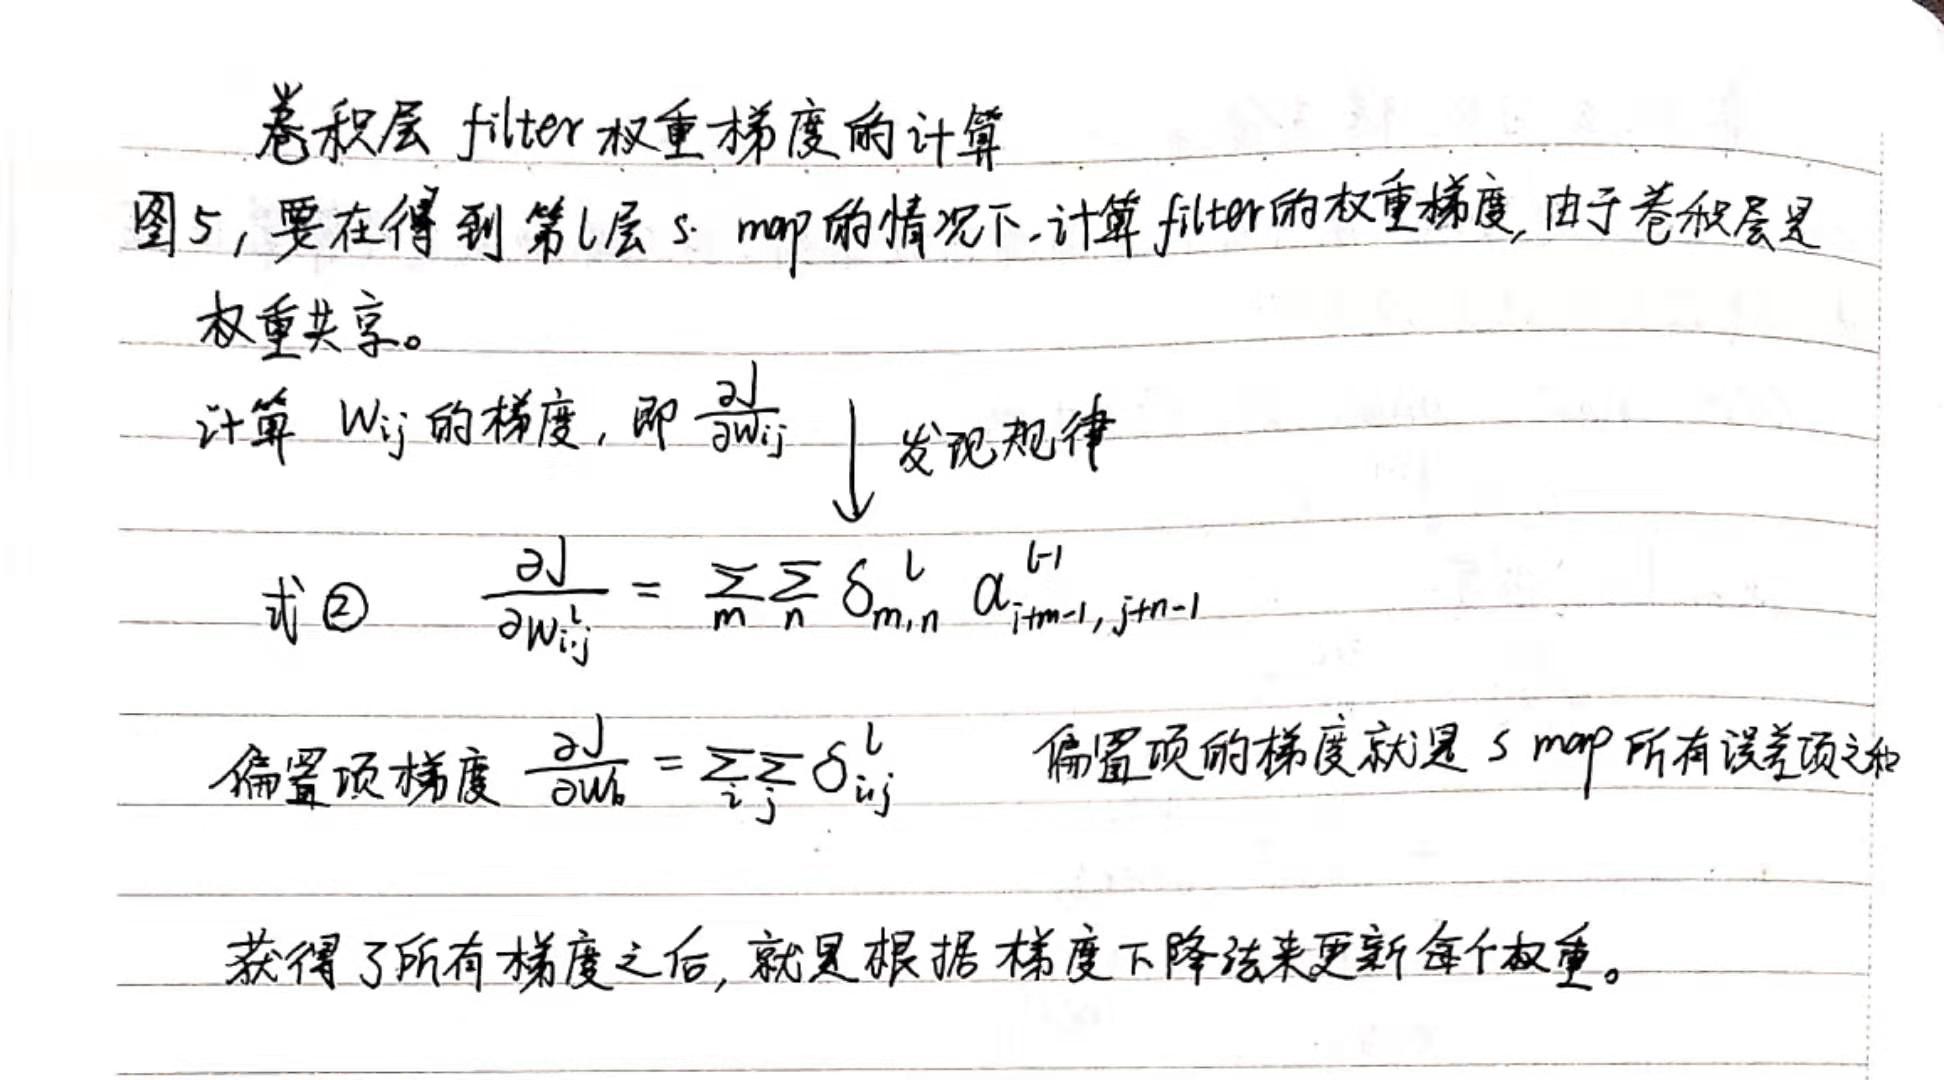 卷积层 filter 权重梯度的计算
图5,要在得到第l层 s. map 的情况下.计算filter的权重梯度,由于卷积层是
权重共享。
计算 Wij 的梯度,即 ∂J/∂Wij ↓ 发现规律
式② ∂J/∂W^l_{i,j} = Σ_m Σ_n δ^l_{m,n} a^{l-1}_{i+m-1, j+n-1}
偏置项梯度 ∂J/∂W_b = Σ_i Σ_j δ^l_{i,j} 偏置项的梯度就是 s map 所有误差项之和
获得了所有梯度之后,就是根据梯度下降法来更新每个权重。